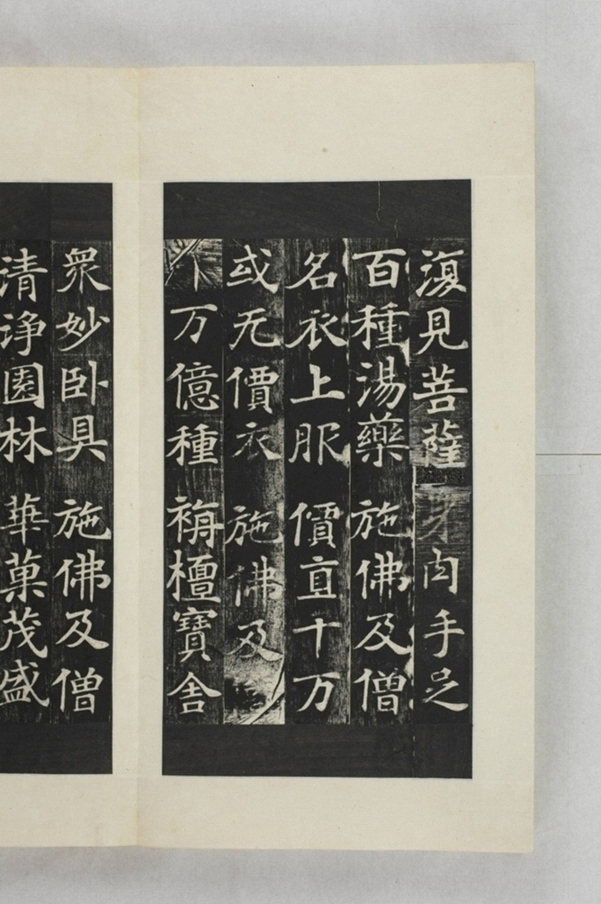 復見菩薩 身肉手足
百種湯藥 施佛及僧
名衣上服 價直十万
或无價衣 施佛及僧
万億種 栴檀寶舍
衆妙卧具 施佛及僧
清浄園林 華菓茂盛